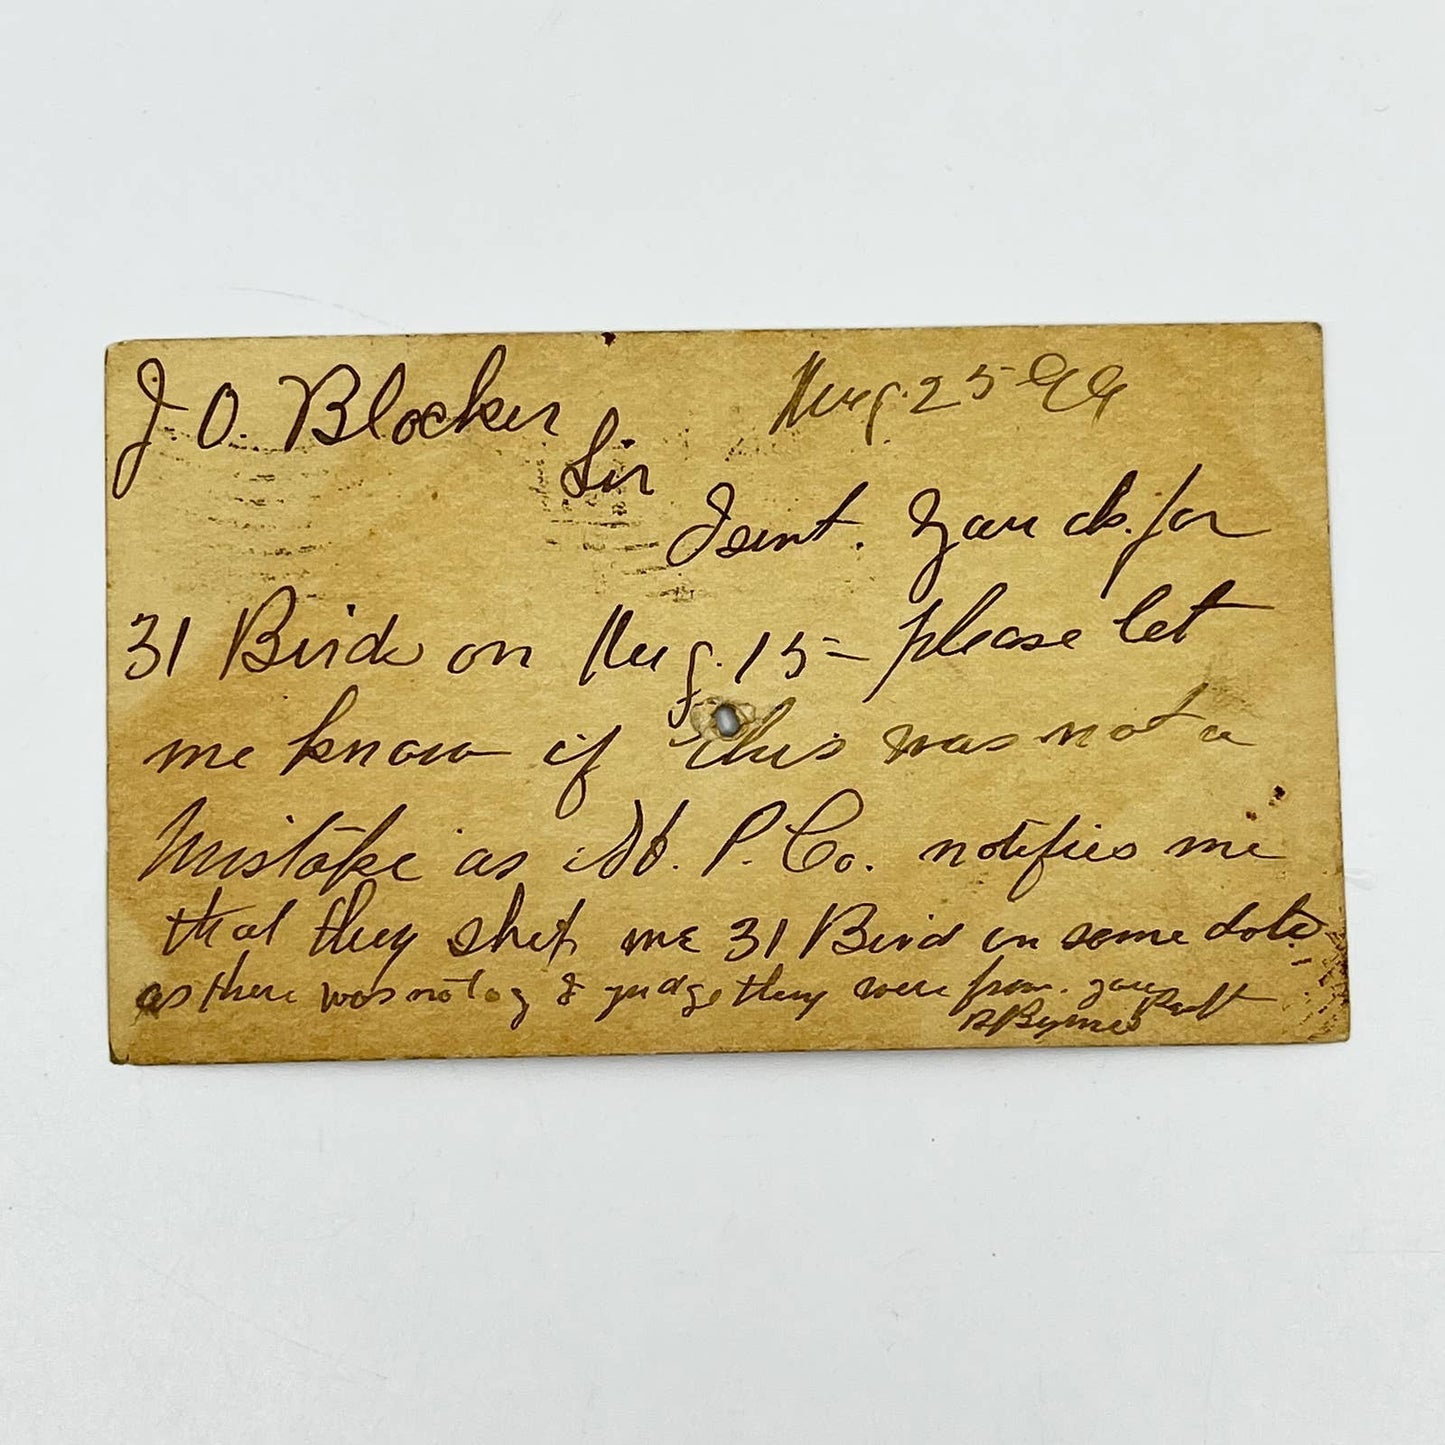 J. O. Blocker Aug. 25-99
Sir
I sent. you ck. for
31 Birds on Aug. 15 - please let
me know if this was not a
Mistake as P. Co. notifies me
that they ship me 31 Birds on same date
as there was no tag I judge they were from you
Byrnes